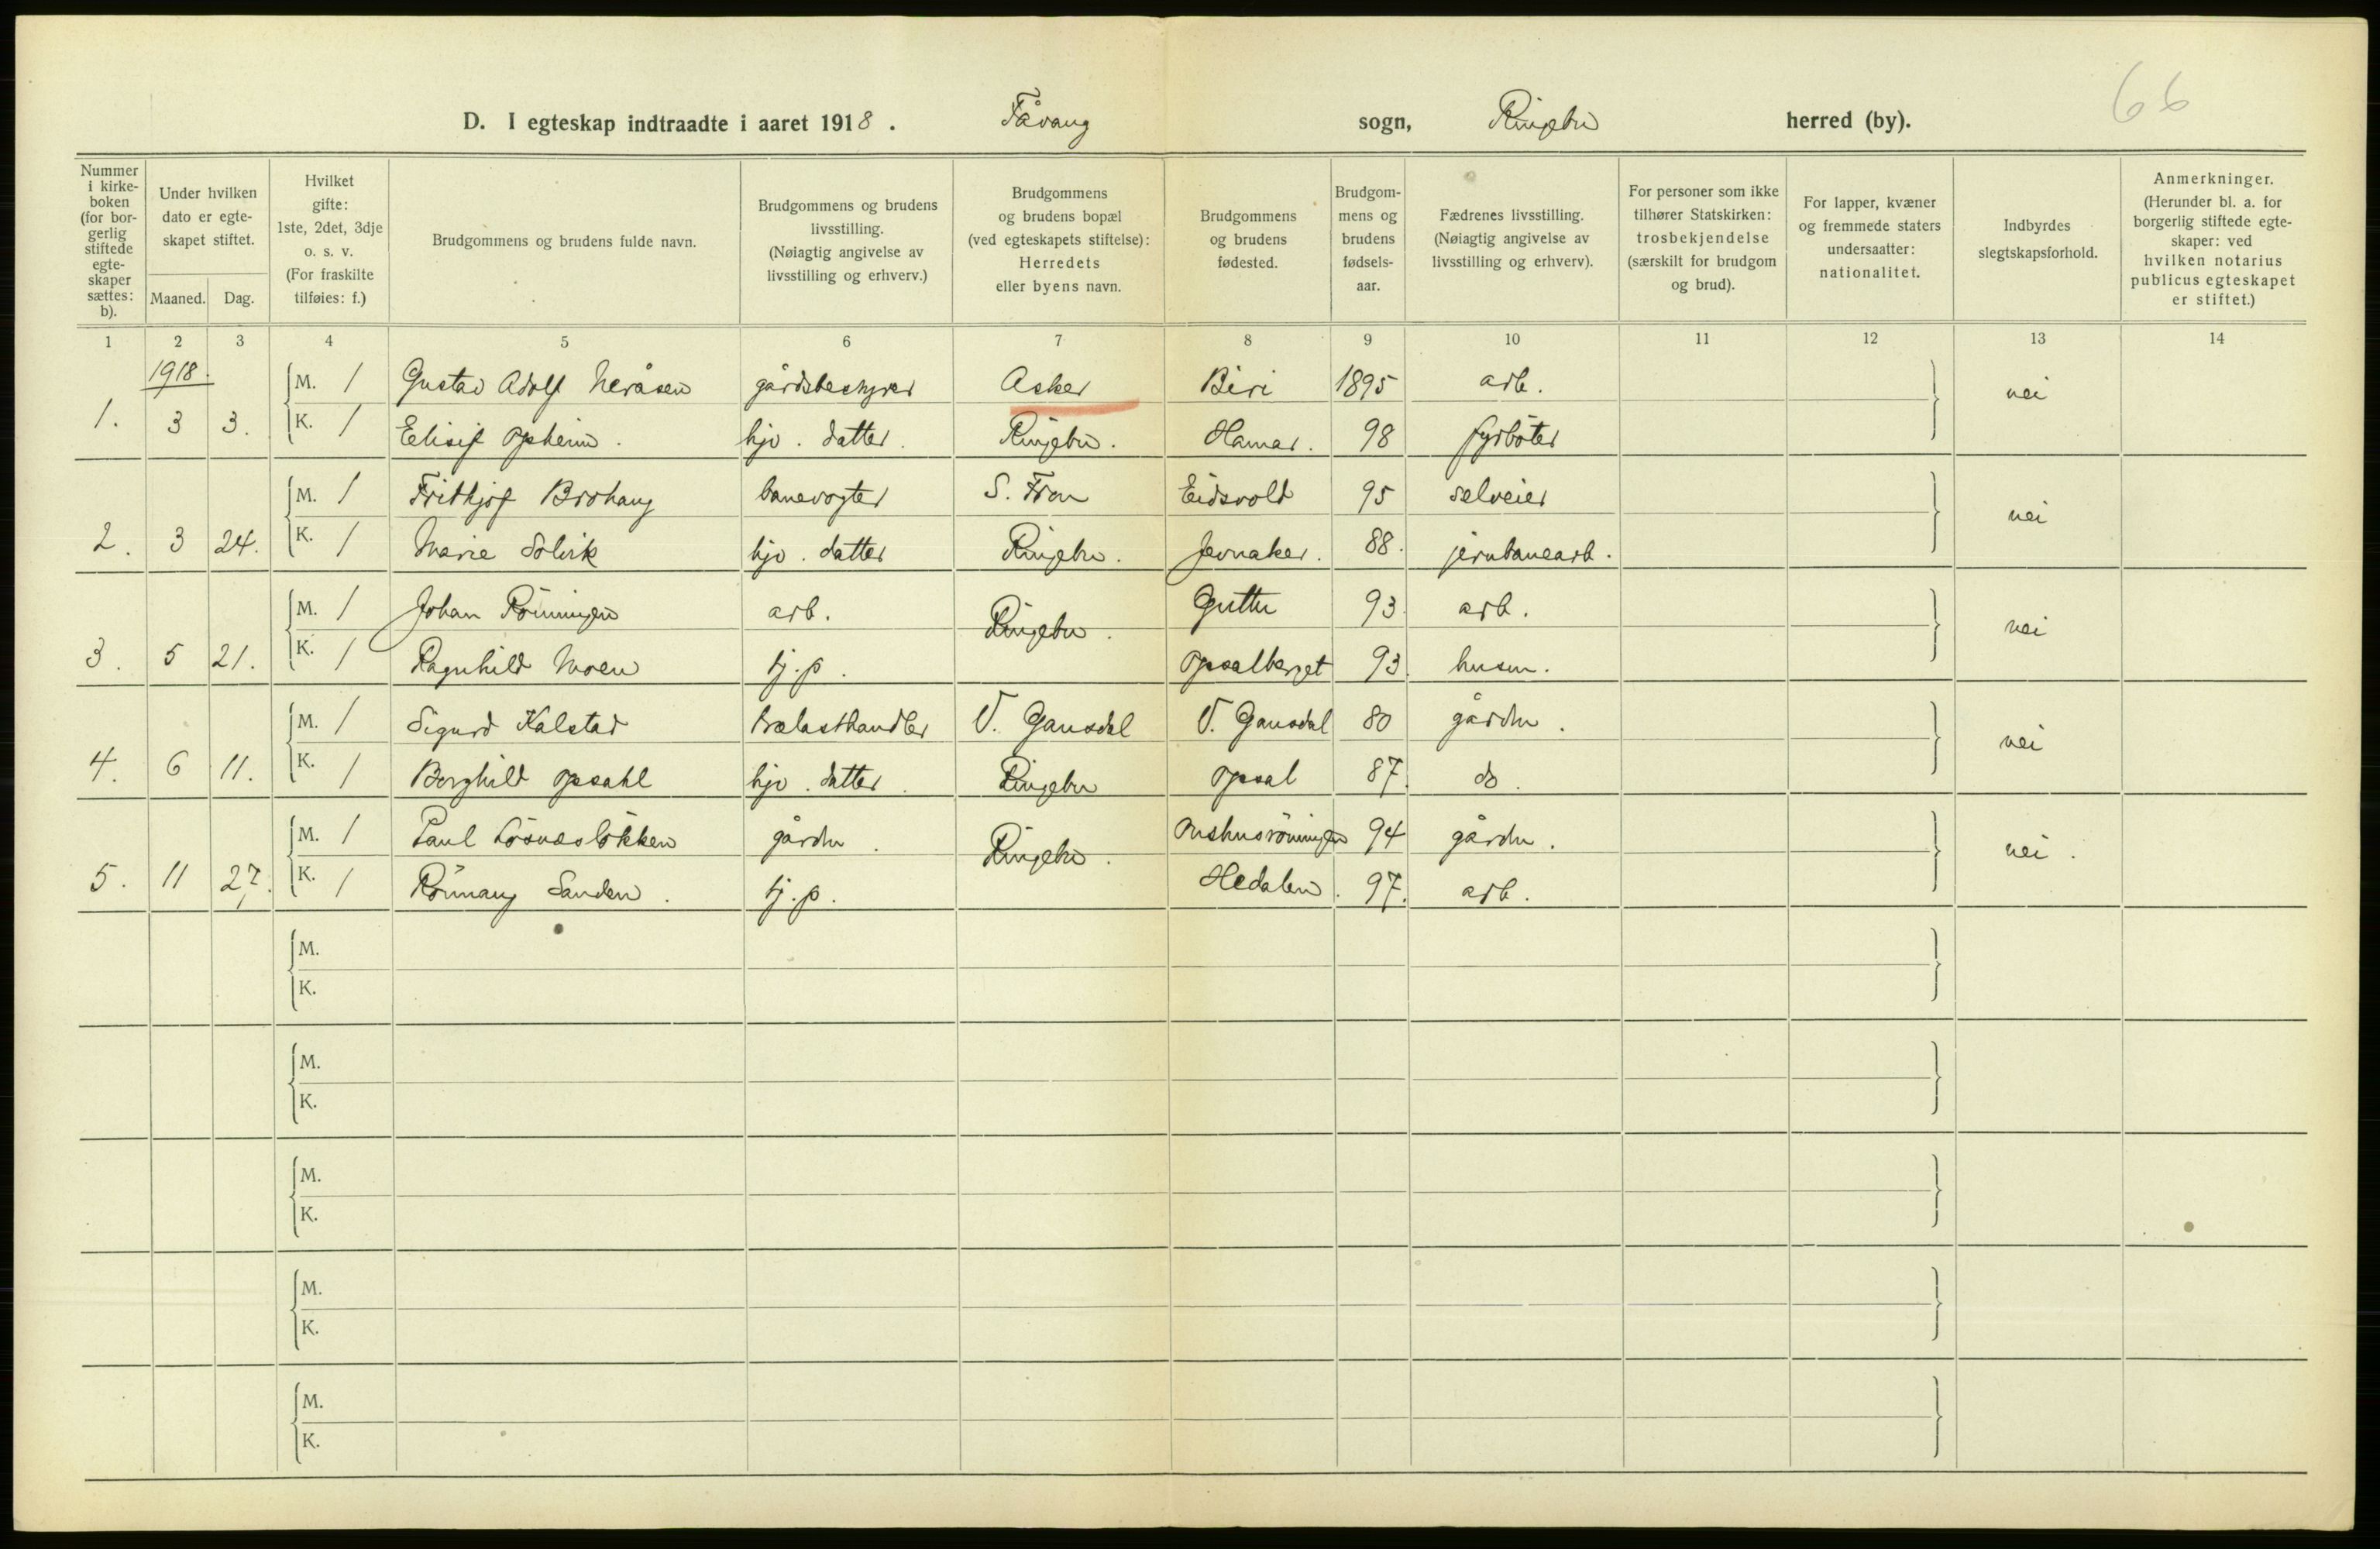 66
D. I egteskap indtraadte i aaret 1918. Fåvang sogn, Ringebu herred (by).
Nummer i kirke-boken (for bor-gerlig stiftede egte-skaper sættes: b).
Under hvilken dato er egte-skapet stiftet.
Maaned. Dag.
Hvilket gifte: 1ste, 2det, 3dje o. s. v. (For fraskilte tilføies: f.)
Brudgommens og brudens fulde navn.
Brudgommens og brudens livsstilling. (Nøiagtig angivelse av livsstilling og erhverv.)
Brudgommens og brudens bopæl (ved egteskapets stiftelse): Herredets eller byens navn.
Brudgommens og brudens fødested.
Brudgom-mens og brudens fødsels-aar.
Fædrenes livsstilling. (Nøiagtig angivelse av livsstilling og erhverv).
For personer som ikke tilhører Statskirken: trosbekjendelse (særskilt for brudgom og brud).
For lapper, kvæner og fremmede staters undersaatter: nationalitet.
Indbyrdes slegtskapsforhold.
Anmerkninger. (Herunder bl. a. for borgerlig stiftede egte-skaper: ved hvilken notarius publicus egteskapet er stiftet.)
1 2 3 4 5 6 7 8 9 10 11 12 13 14
1918.
M. 1 Gustav Adolf Neråsen gårdsbestyrer Asker Biri 1895 arb. nei
1. 3 3. K. 1 Elisif Opheim. hjv. datter. Ringebu. Hamar. 98 fyrböter
M. 1 Frithjof Brohaug banevogter S. Fron Eidsvold 95 selveier nei
2. 3 24. K. 1 Marie Solvik hjv. datter Ringebu. Jevnaker. 88. jernbanearb.
M. 1 Johan Rönningen arb. Ringebu. Guttu 93. arb. nei
3. 5 21. K. 1 Ragnhild Moen tj.p. Opsalberget 93. husm.
M. 1 Sigurd Kalstad trælasthandler V. Gausdal V. Gausdal 80 gårdbr. nei
4. 6 11. K. 1 Borghild Opsahl hjv. datter. Ringebu Opsal 87. do.
M. 1 Paul Lösneslökken gårdbr. Ringebu. Onshusröningen 94 gårdbr. nei.
5. 11 27. K. 1 Rönnaug Sanden. tj.p. Hedalen. 97. arb.
M.
K.
M.
K.
M.
K.
M.
K.
M.
K.